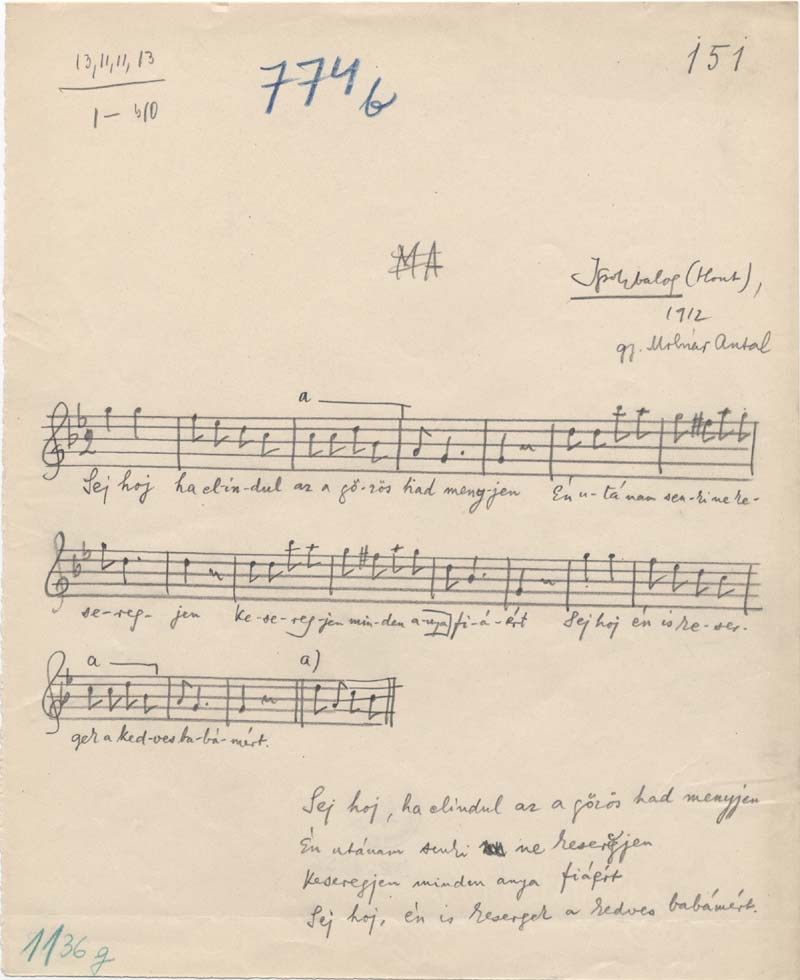 13, 11, 11, 13
1 – b10
774 b
151
MA
Ipolybalog (Hont),
1912
gy. Molnár Antal
a
2
Sej hoj ha el-in-dul az a gő-zös had meny-jen Én u-tá nam sen-ki ne ke-
se-reg-jen ke-se-reg-jen min-den a-nya fi-á-ért Sej hoj én is ke-ser-
a a)
gek a ked-ves ba-bá-mért.
Sej hoj, ha elindul az a gőzös had menyjen
Én utánam senki ne keseregjen
Keseregjen minden anya fiáért
Sej hoj, én is kesergek a kedves babámért.
1136 g